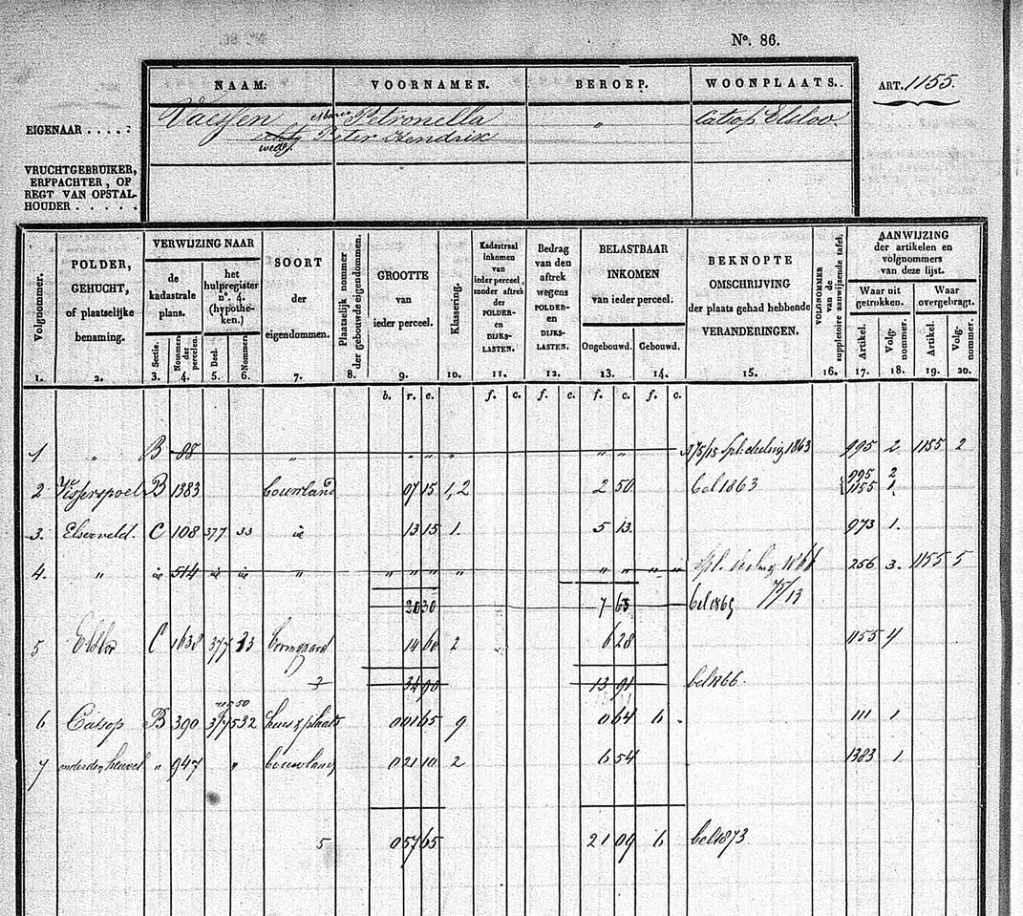 No. 86.
NAAM. VOORNAMEN. BEROEP. WOONPLAATS. ART. 1155.
EIGENAAR . . . . : Vaessen Petronella " Catsop Elsloo.
wed. Peter Hendrix
VRUCHTGEBRUIKER,
ERFPACHTER, OF
REGT VAN OPSTAL-
HOUDER . . . . .
Volgnommer. 1.
POLDER, GEHUCHT, of plaatselijke benaming. 2.
VERWIJZING NAAR
de kadastrale plans.
Sectie. 3.
Nommer der perceelen. 4.
het hulpregister n°. 4. (hypotheken.)
Deel. 5.
Nommer. 6.
SOORT der eigendommen. 7.
Plaatselijk nommer der gebouwde eigendommen. 8.
GROOTTE van ieder perceel. 9.
Klassering. 10.
Kadastraal inkomen van ieder perceel, zonder aftrek der POLDER- en DIJKS-LASTEN. 11.
Bedrag van den aftrek wegens POLDER- en DIJKS-LASTEN. 12.
BELASTBAAR INKOMEN van ieder perceel.
Ongebouwd. 13.
Gebouwd. 14.
BEKNOPTE OMSCHRIJVING der plaats gehad hebbende VERANDERINGEN. 15.
VOLGNOMMER van de suppletoire aanwijzende tafel. 16.
AANWIJZING der artikelen en volgnommers van deze lijst.
Waar uit getrokken.
Artikel. 17.
Volgnommer. 18.
Waar overgebragt.
Artikel. 19.
Volgnommer. 20.
b. r. e. f. c. f. c. f. c. f. c.
1 " B 88 " " " " " " deeling 1863 995 2 1155 2
2 Visserspoel B 1383 bouwland 07 15 1,2 2 50 bel 1863 995 2
1155 1.
3. Elserveld. C 108 377 33 id 13 15 1. 5 13. 973 1.
4. " id 514 id id " " " " " " " " " 256 3. 1155 5
20 30 7 63 bel 1865
5 C 1638 377 33 boomgaard 14 60 2 6 28 1155 4
3 34 90 13 91 bel 1866.
6 Catsop B 390 377 532 huis & plaats 0 01 65 9 0 64 6 - 111 1
7 onder den heuvel " 947 " bouwland 0 21 10 2 6 54 1383 1.
5 0 57 65 21 09 6 bel 1873